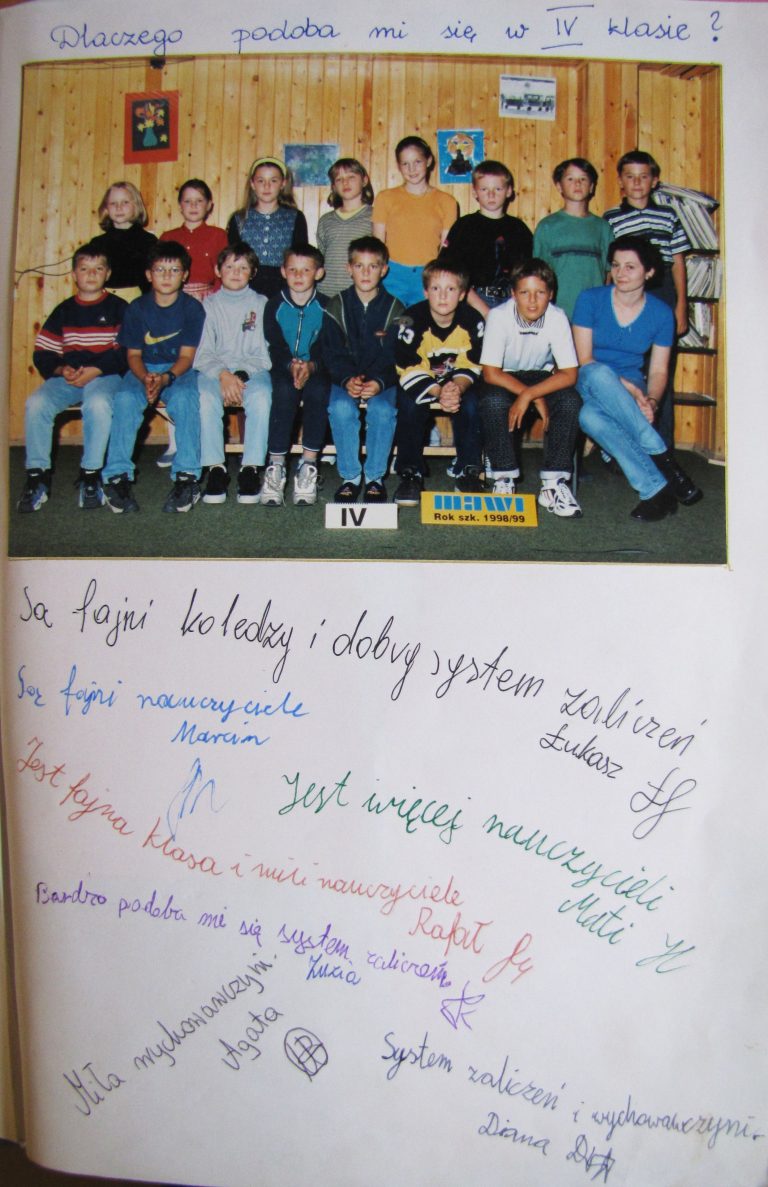 Dlaczego podoba mi się w IV klasie?
IV
MAWI
Rok szk. 1998/99
Są fajni koledzy i dobry system zaliczeń
Łukasz
Są fajni nauczyciele
Marcin
Jest więcej nauczycieli
Mati
Jest fajna klasa i mili nauczyciele
Rafał
Bardzo podoba mi się system zaliczeń.
Zuzia
Miła wychowawczyni.
Agata
System zaliczeń i wychowawczyni.
Diana